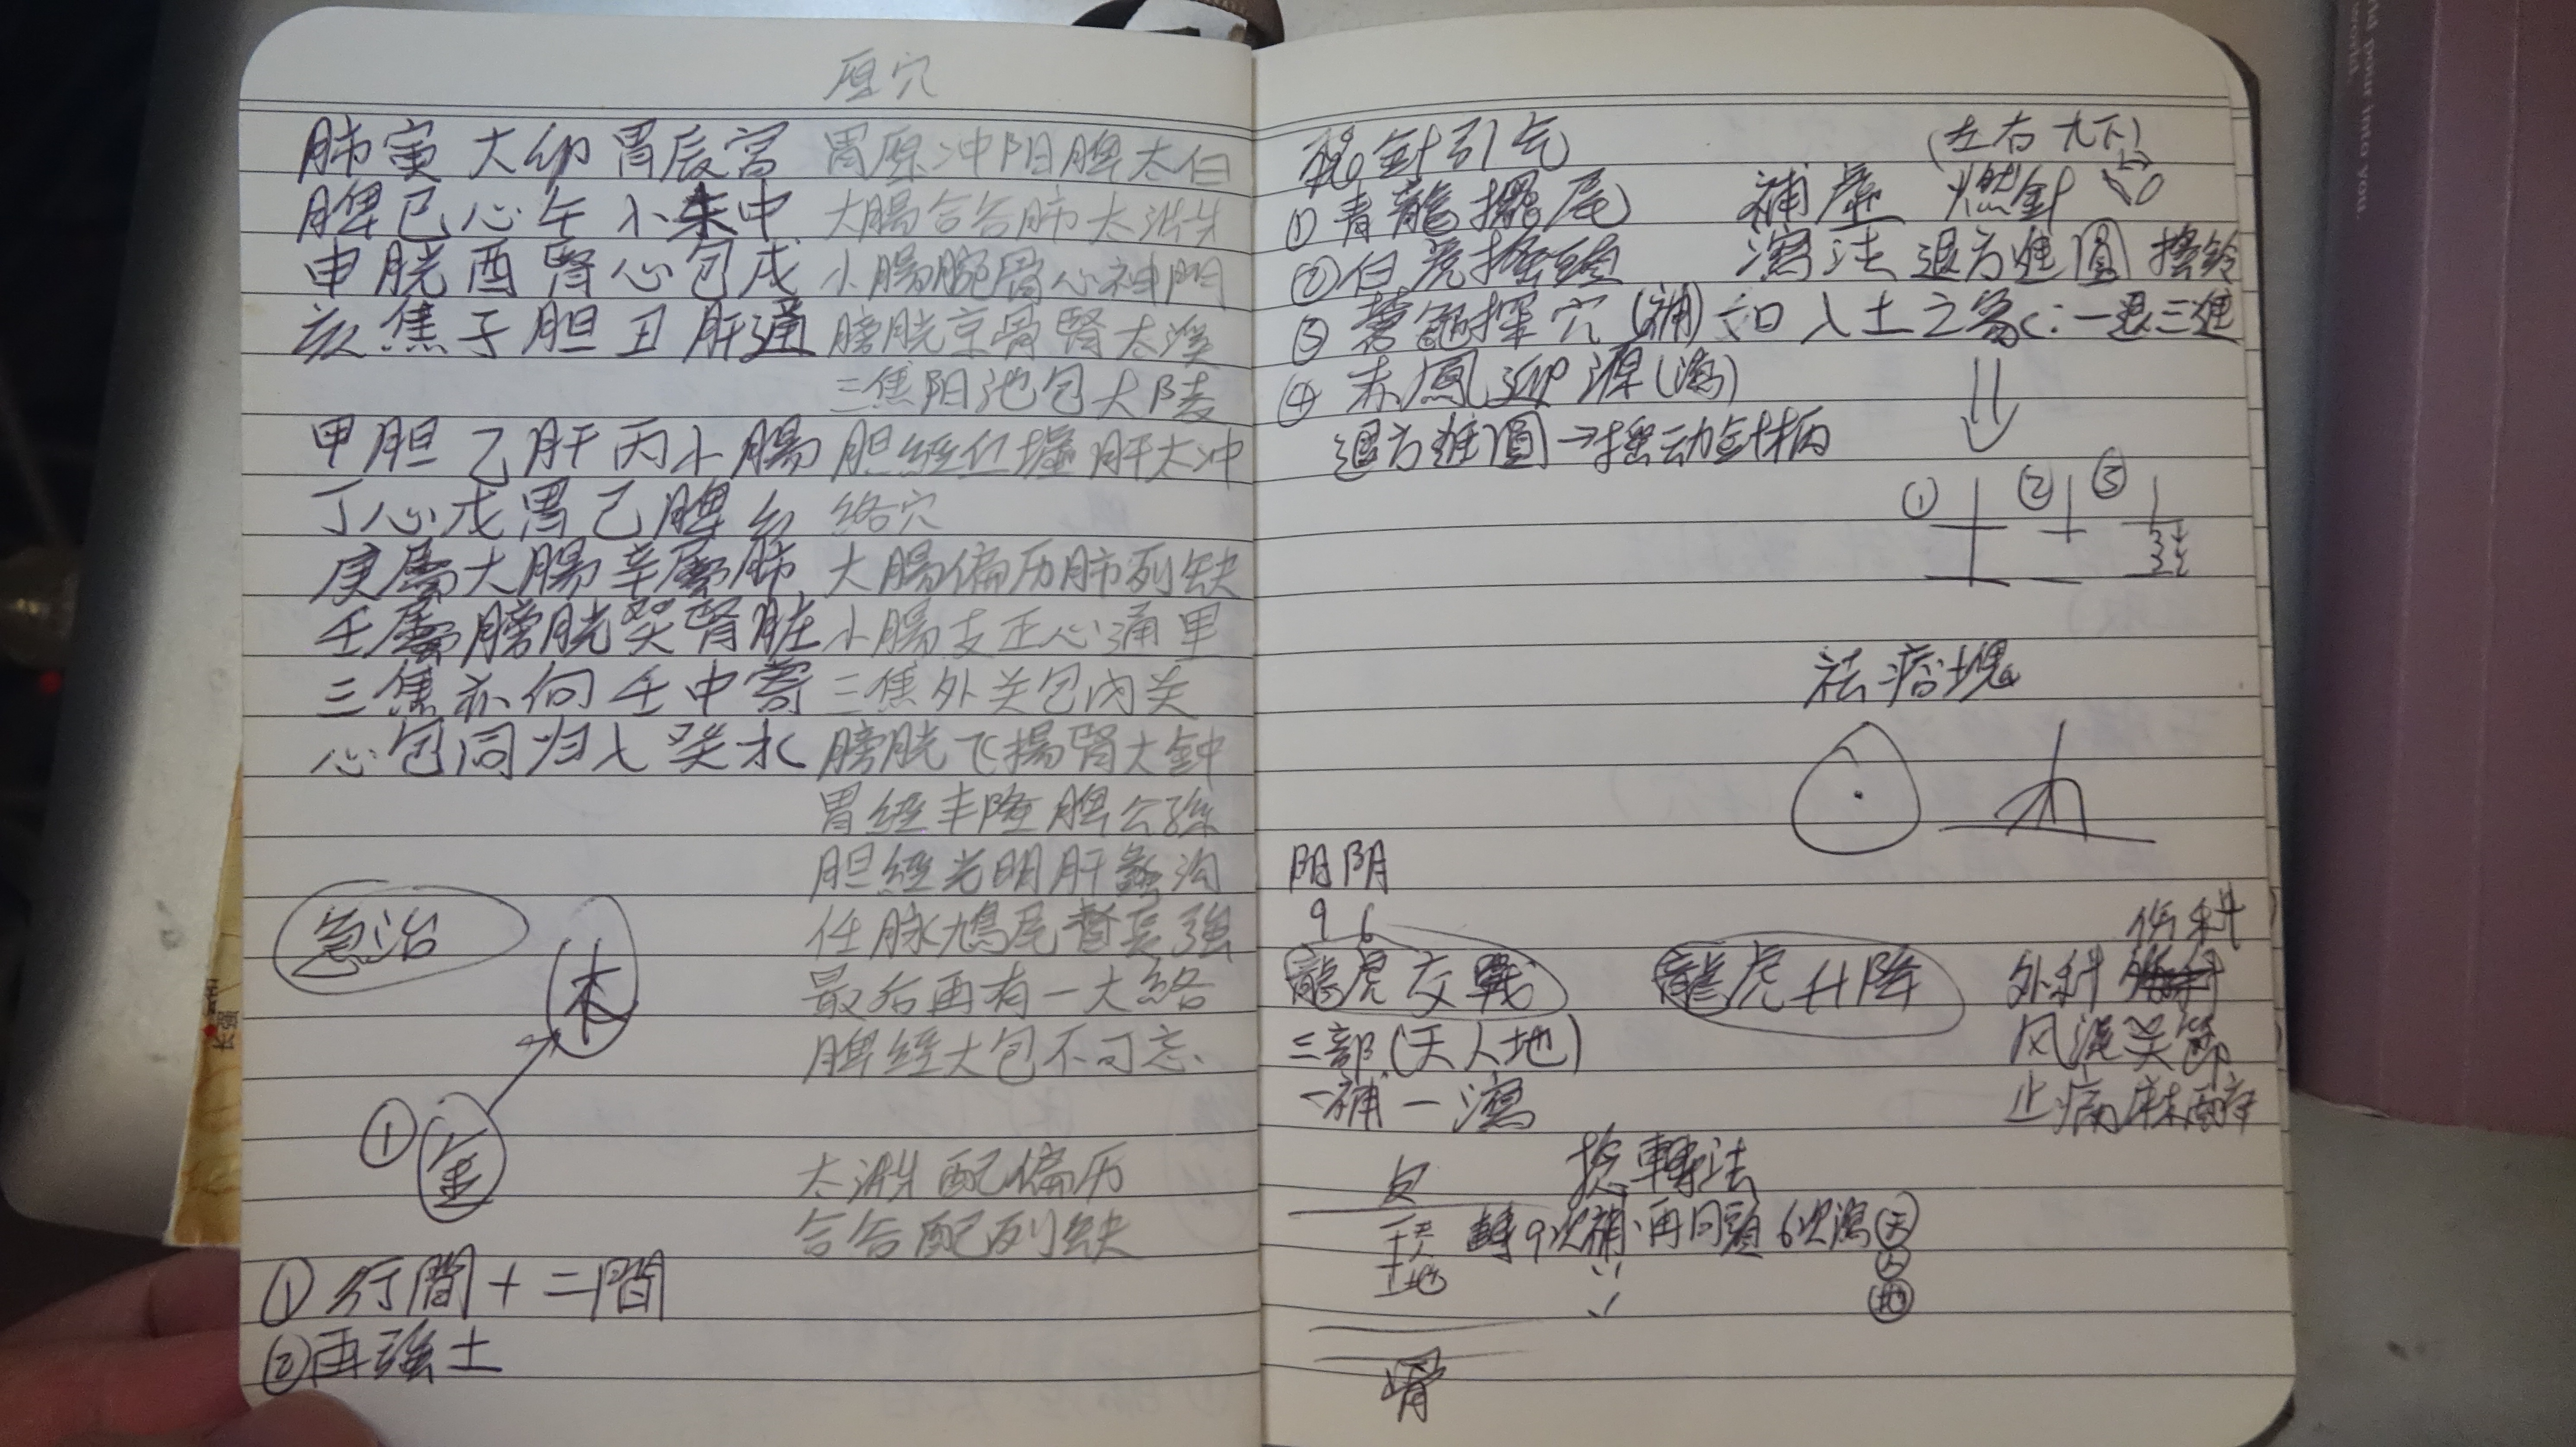 原穴
肺寅大卯胃辰宮
脾巳心午小未中
申胱酉腎心包戌
亥焦子胆丑肝通
甲胆乙肝丙小腸
丁心戊胃己脾
庚屬大腸辛屬肺
壬屬膀胱癸腎脏
三焦亦向壬中寄
心包同归入癸水
急治
木
① 金
① 行間+二間
② 再強土
胃原冲阳脾太白
大腸合谷肺太渊
小腸腕骨心神門
膀胱京骨腎太溪
三焦阳池包大陵
胆經丘墟肝太冲
络穴
大腸偏历肺列缺
小腸支正心通里
三焦外关包内关
膀胱飞揚腎大鈡
胃經丰隆脾公孫
胆經光明肝蠡沟
任脉鳩尾督長強
最后再有一大絡
脾經大包不可忘、
太渊配偏历
合谷配列缺
針引气
(左右九下)
① 青龍擺尾 補虛 燃針
② 白虎搖頭 瀉法 退方進圓 搖鈴
③ 蒼龜探穴(補) 如入土之象 一退三進
④ 赤鳳迎源(瀉)
退方進圓→摇动針柄
① ② ③
祛瘤塊
阳 阴
9 6
龍虎交戰 龍虎升降
三部(天人地)
一補一瀉
伤科
外科
风湿关節
止痛麻醉
皮 捻轉法
天 轉9次補、再回頭6次瀉 天
人
地 地
骨
长强